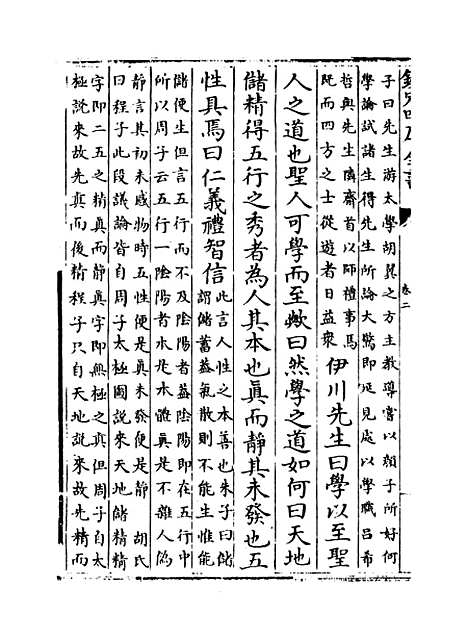 欽定四庫全書
卷二
子曰先生游太學胡翼之方主教導嘗以顔子所好何
學論試諸生得先生所論大驚即延見處以學職呂希
哲與先生鄰齋首以師禮事焉
既而四方之士從遊者日益衆
伊川先生曰學以至聖
人之道也聖人可學而至歟曰然學之道如何曰天地
儲精得五行之秀者為人其本也真而靜其未發也五
性具焉曰仁義禮智信
此言人性之本善也朱子曰儲
謂儲蓄蓋氣散則不能生惟能
儲便生但言五行而不及陰陽者蓋陰陽即在五行中
所以周子云五行一陰陽者本是本體真是不雜人偽
靜言其初未感物時五性便是真未發便是靜 胡氏
曰程子此段議論皆自周子太極圖說來天地儲精精
字即二五之精真而靜真字即無極之真但周子自太
極說來故先真而後精程子只自天地說來故先精而